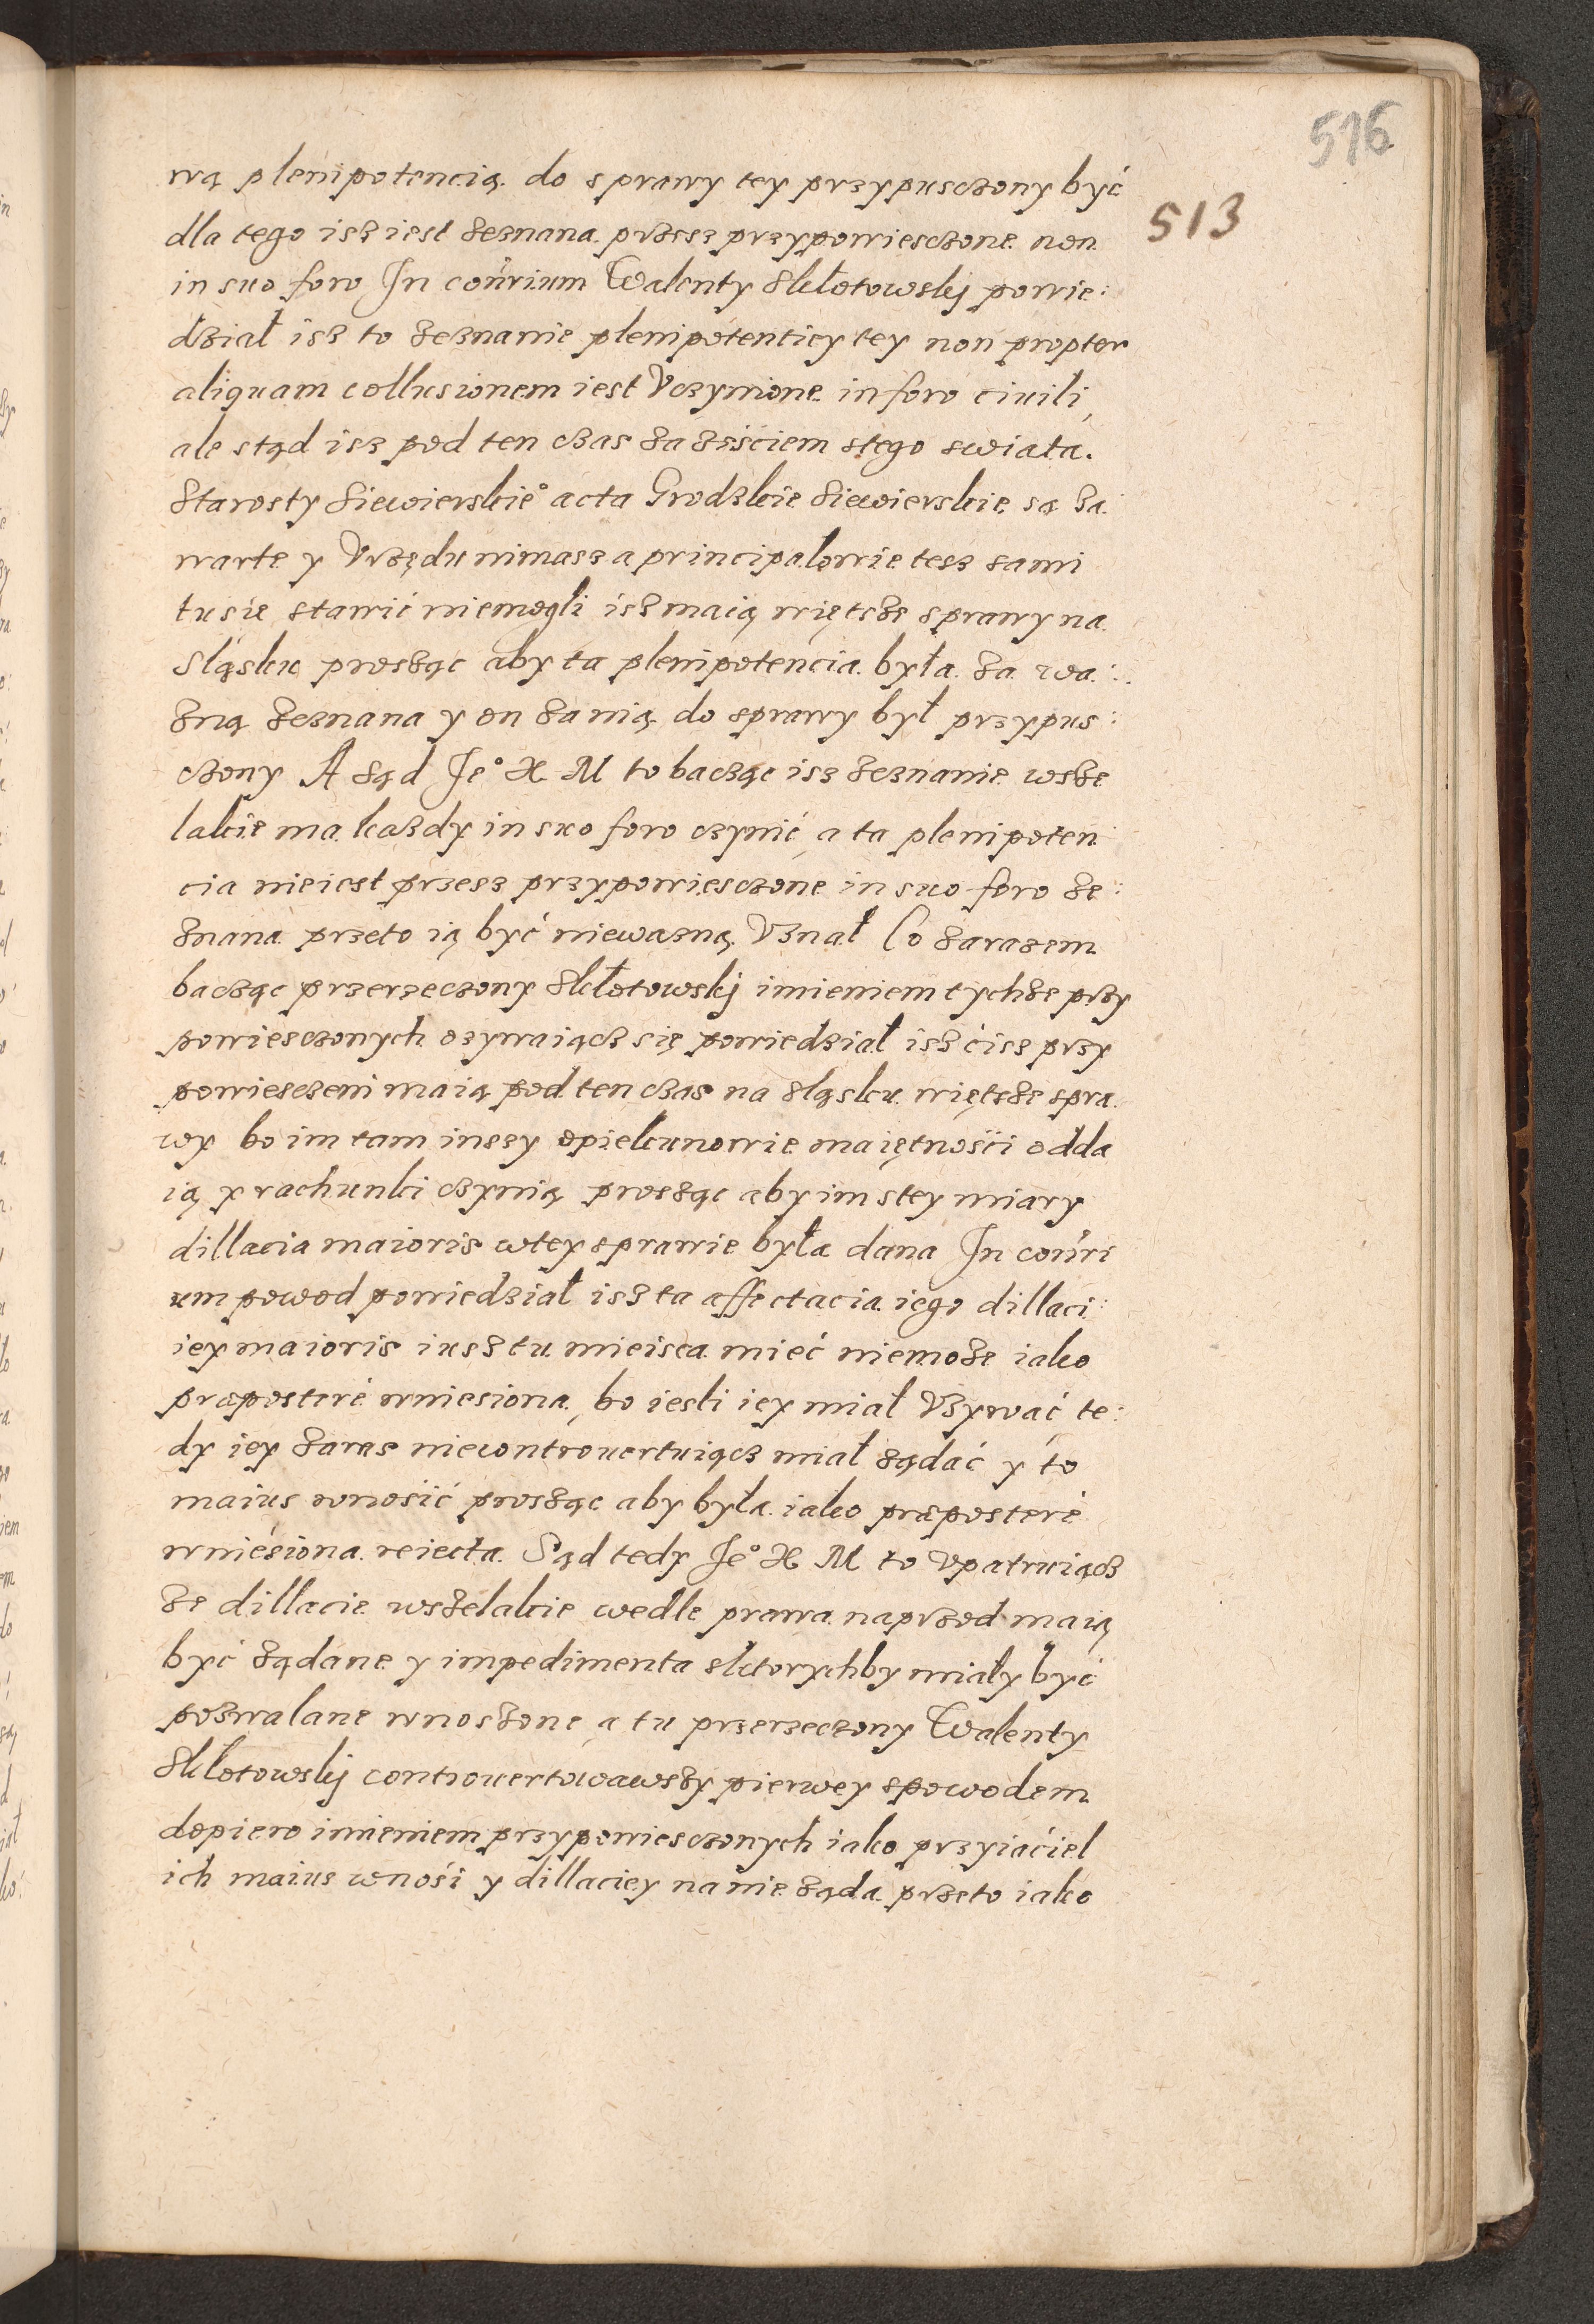 516
wą plenipotencią do sprawy tey przypusczony być
513
dla tego isz iest zeznana przesz przypowiesczone non
in suo foro In con̄rium Walenty Skłotowskj powie:
dział isz to zeznanie plenipotentiey tey non propter
aliquam collusionem iest Vczynione in foro ciuili,
ale stąd isz pod ten czas za ześciem stego swiata.
Starosty Siewierskie° acta Grodzkie Siewierskie są za
warte y Vrzędu nimasz a principałowie tesz sami
tu sie stawić niemogli isz maią więtsze sprawy na
Sląsku prosząc aby ta plenipotencia była za wa:
zną zeznana y on za nią do sprawy był przypus:
czony A sąd Je° X M to bacząc isz zeznanie wsze
lakie ma każdy in suo foro czynić, a ta plenipoten
cia nieiest przesz przypowiesczone in suo foro ze:
znana przeto ią być niewazną Vznał Co zarazem
bacząc przerzeczony Skłotowskj imieniem tychze przy
powiesczonych ozywaiącz się powiedział isz cisz przy
powiesczeni maią pod ten czas na Sląsku więtsze spra
wy bo im tam inszy opiekunowie maiętnosci odda
ią y rachunki czynią prosząc aby im stey miary
dillacia maioris wtey sprawie była dana In con̄ri
um powod powiedział isz ta affectacia iego dillaci:
iey maioris iusz tu mieisca mieć niemoze iako
præposterè wniesiona, bo iesli iey miał Vzywać te:
dy iey zaras niecontrouertuiącz miał ządać y to
maius wnosić prosząc aby była iako præposterè
wniesiona reiecta Sąd tedy Je° X M to vpatruiącz
ze dillacie wszelakie wedle prawa naprzod maią
być ządane y impedimenta sktorychby miały być
pozwalane wnoszone, a tu przerzeczony Walenty
Skłotowskj controuertowawszy pierwey spowodem
dopiero imieniem przypowiesczonych iako przyiaćiel
ich maius wnośi y dillaciey na nie ząda przeto iako